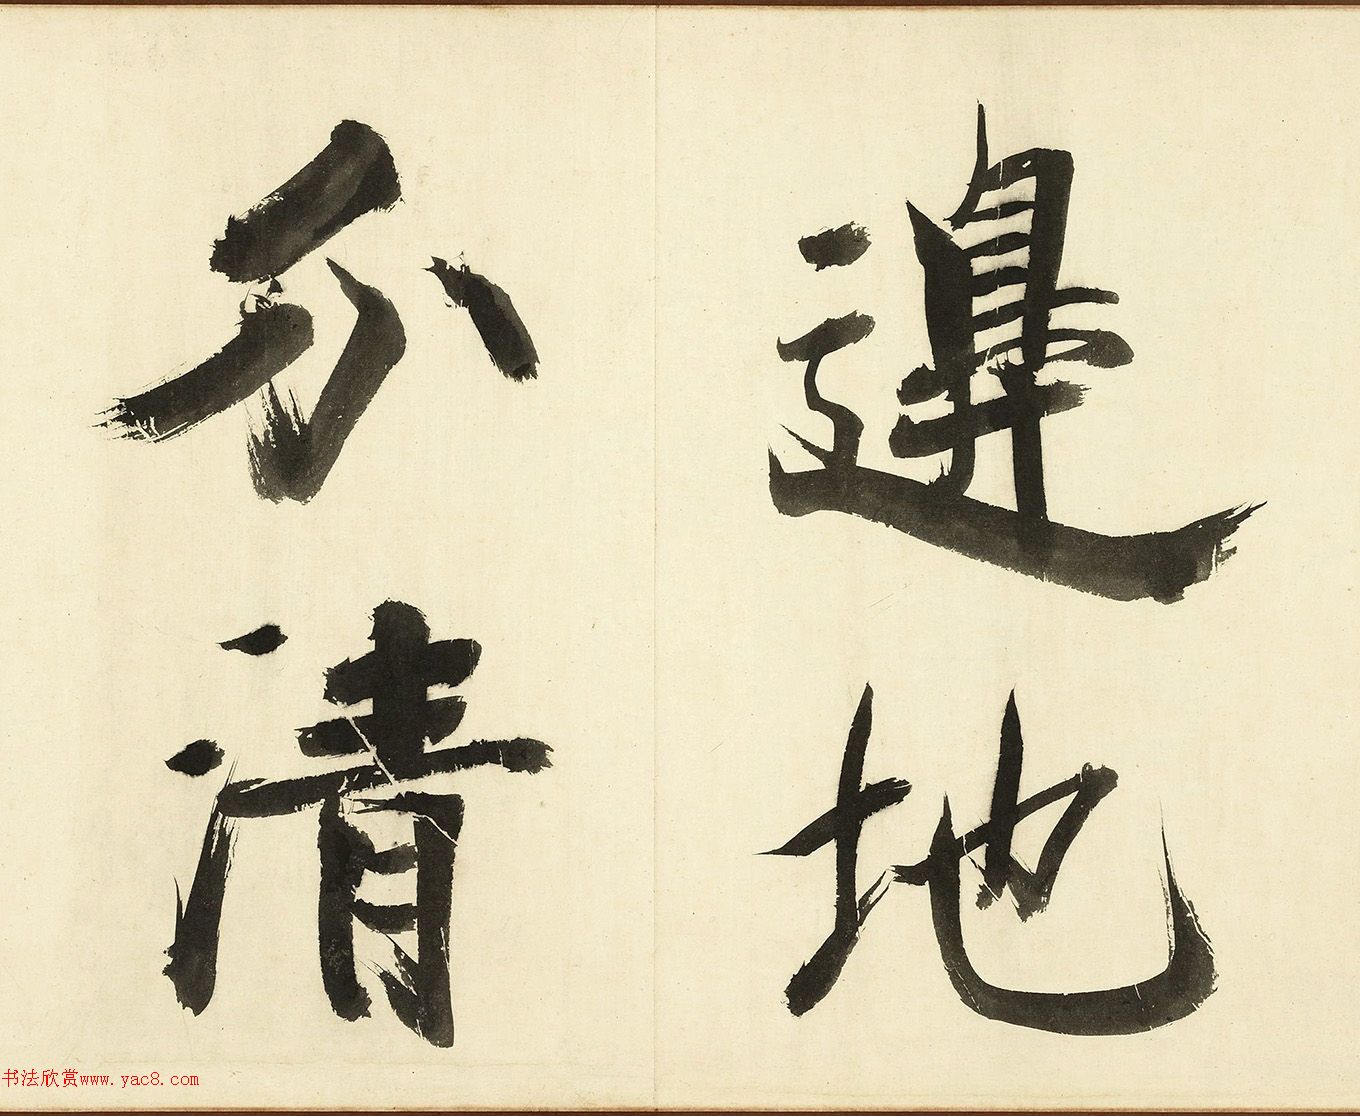 邊地
分清
书法欣赏www.yac8.com